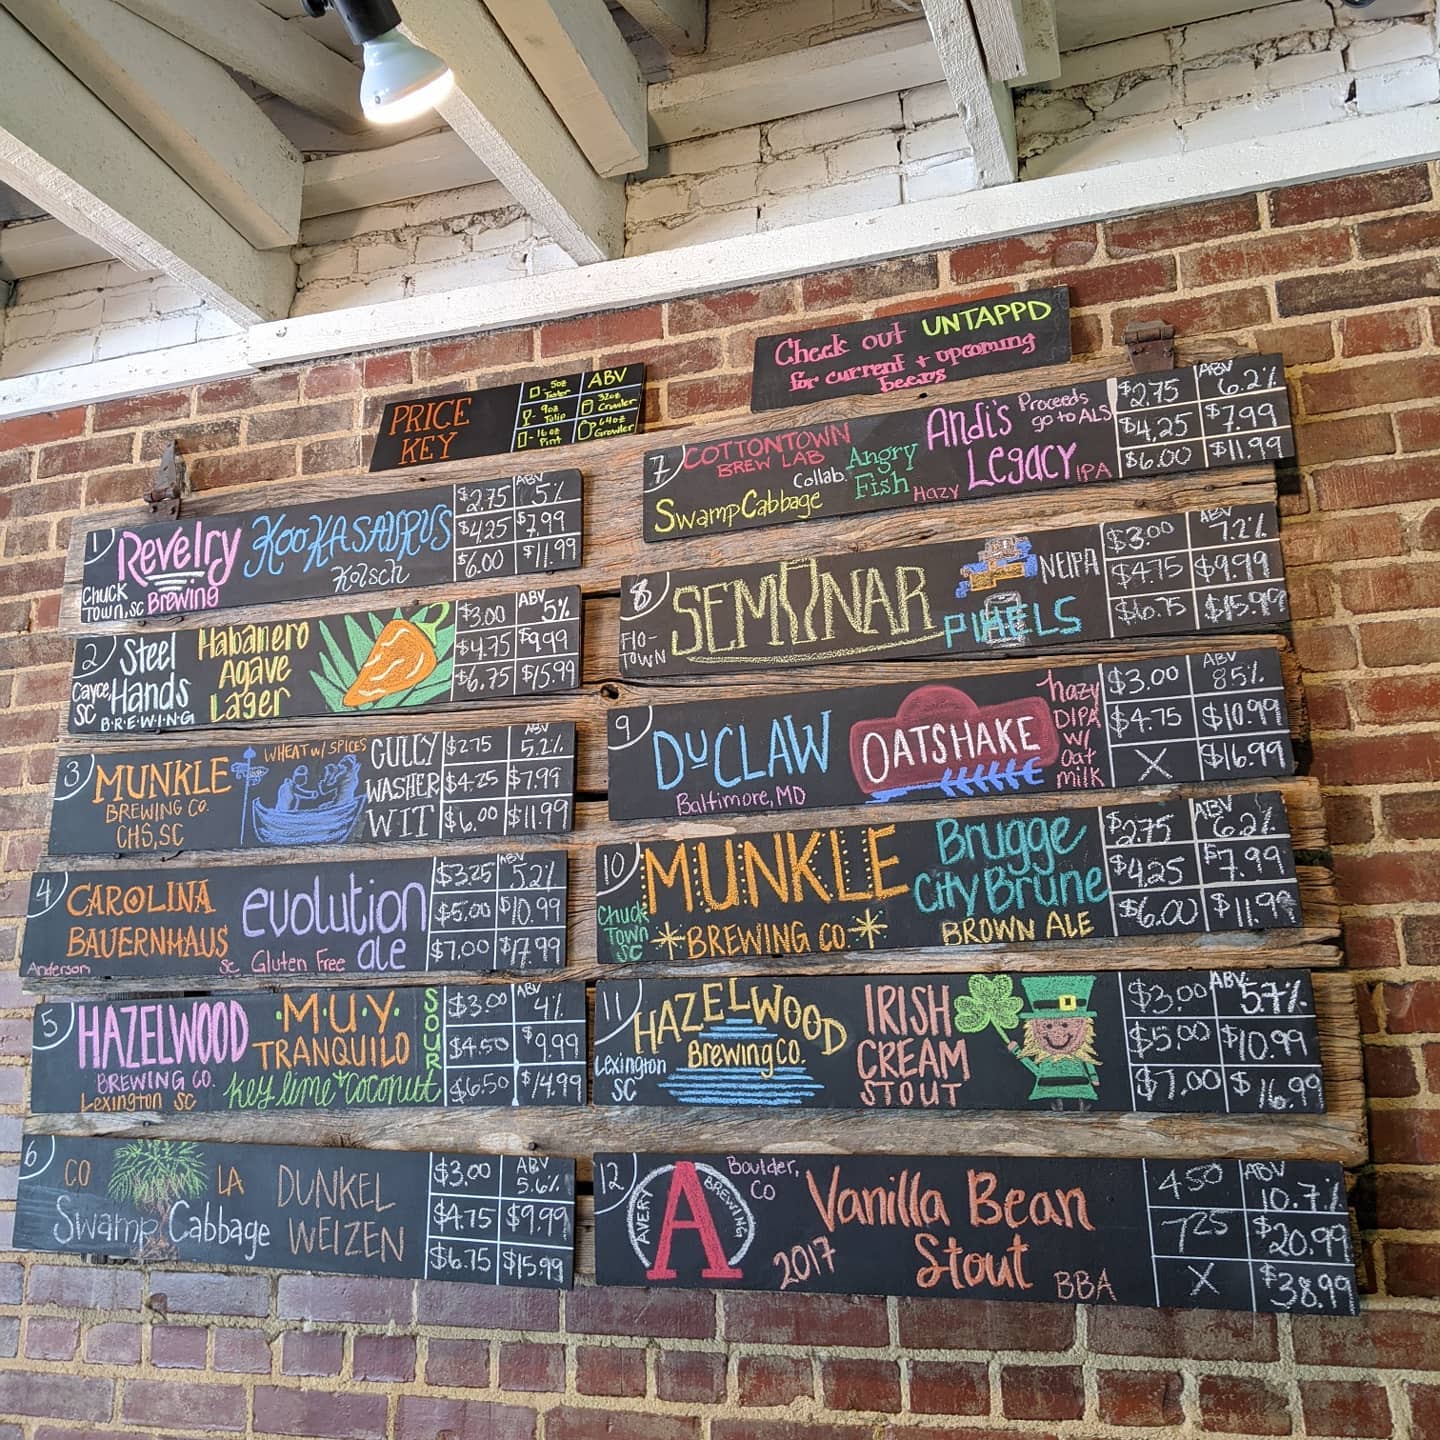 PRICE
KEY
5oz
Taster
9oz
Tulip
16oz
Pint
ABV
32oz
Crowler
64oz
Growler
Check out UNTAPPD
for current + upcoming
beers
1
Revelry
Brewing
Chuck
Town, SC
KOOKASAURUS
Kolsch
$2.75
$4.25
$6.00
ABV
5%
$7.99
$11.99
2
Steel
Hands
BREWING
Cayce,
SC
Habanero
Agave
Lager
$3.00
$4.75
$6.75
ABV
5%
$9.99
$15.99
3
MUNKLE
BREWING CO.
CHS, SC
WHEAT W/ SPICES
GULLY
WASHER
WIT
$2.75
$4.25
$6.00
ABV
5.2%
$7.99
$11.99
4
CAROLINA
BAUERNHAUS
Anderson
SC
Gluten Free
evolution
ale
$3.25
$5.00
$7.00
ABV
5.2%
$10.99
$17.99
5
HAZELWOOD
BREWING CO.
Lexington SC
M·U·Y·
TRANQUILO
Key lime + Coconut
SOUR
$3.00
$4.50
$6.50
ABV
4%
$9.99
$14.99
6
CO
LA
Swamp Cabbage
DUNKEL
WEIZEN
$3.00
$4.75
$6.75
ABV
5.6%
$9.99
$15.99
7
COTTONTOWN
BREW LAB
Collab.
Swamp Cabbage
Angry
Fish
Hazy
Andi's
Legacy
IPA
Proceeds
go to ALS
$2.75
$4.25
$6.00
ABV
6.2%
$7.99
$11.99
8
Flo-
Town
SEMINAR
PIXELS
NEIPA
$3.00
$4.75
$6.75
ABV
7.2%
$9.99
$15.99
9
DuCLAW
Baltimore, MD
OATSHAKE
hazy
DIPA
w/
Oat
milk
$3.00
$4.75
X
ABV
8.5%
$10.99
$16.99
10
Chuck
Town
SC
MUNKLE
BREWING CO.
Brugge
City Brune
BROWN ALE
$2.75
$4.25
$6.00
ABV
6.2%
$7.99
$11.99
11
HAZELWOOD
Brewing Co.
Lexington
SC
IRISH
CREAM
STOUT
$3.00
$5.00
$7.00
ABV
5.7%
$10.99
$16.99
12
AVERY
A
BREWING
Boulder,
CO
2017
Vanilla Bean
Stout
BBA
4.50
7.25
X
ABV
10.7%
$20.99
$38.99